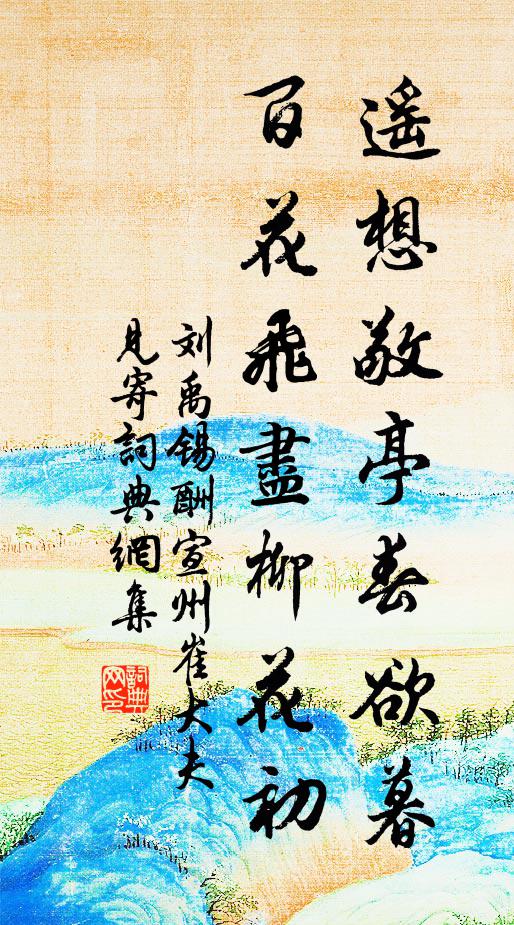 遥想敬亭春欲暮
百花飛盡柳花初
刘禹锡酬宣州崔大夫
見寄詞典網集
詞典
网印